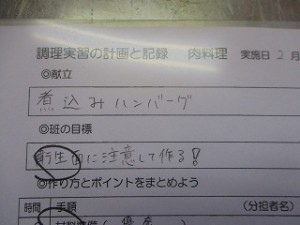 調理実習の計画と記録 肉料理 実施日 2 月
◎献立
煮込みハンバーグ
◎班の目標
衛生面に注意して作る!
◎作り方とポイントをまとめよう
時間 手順 (分担者名)
材料準備(